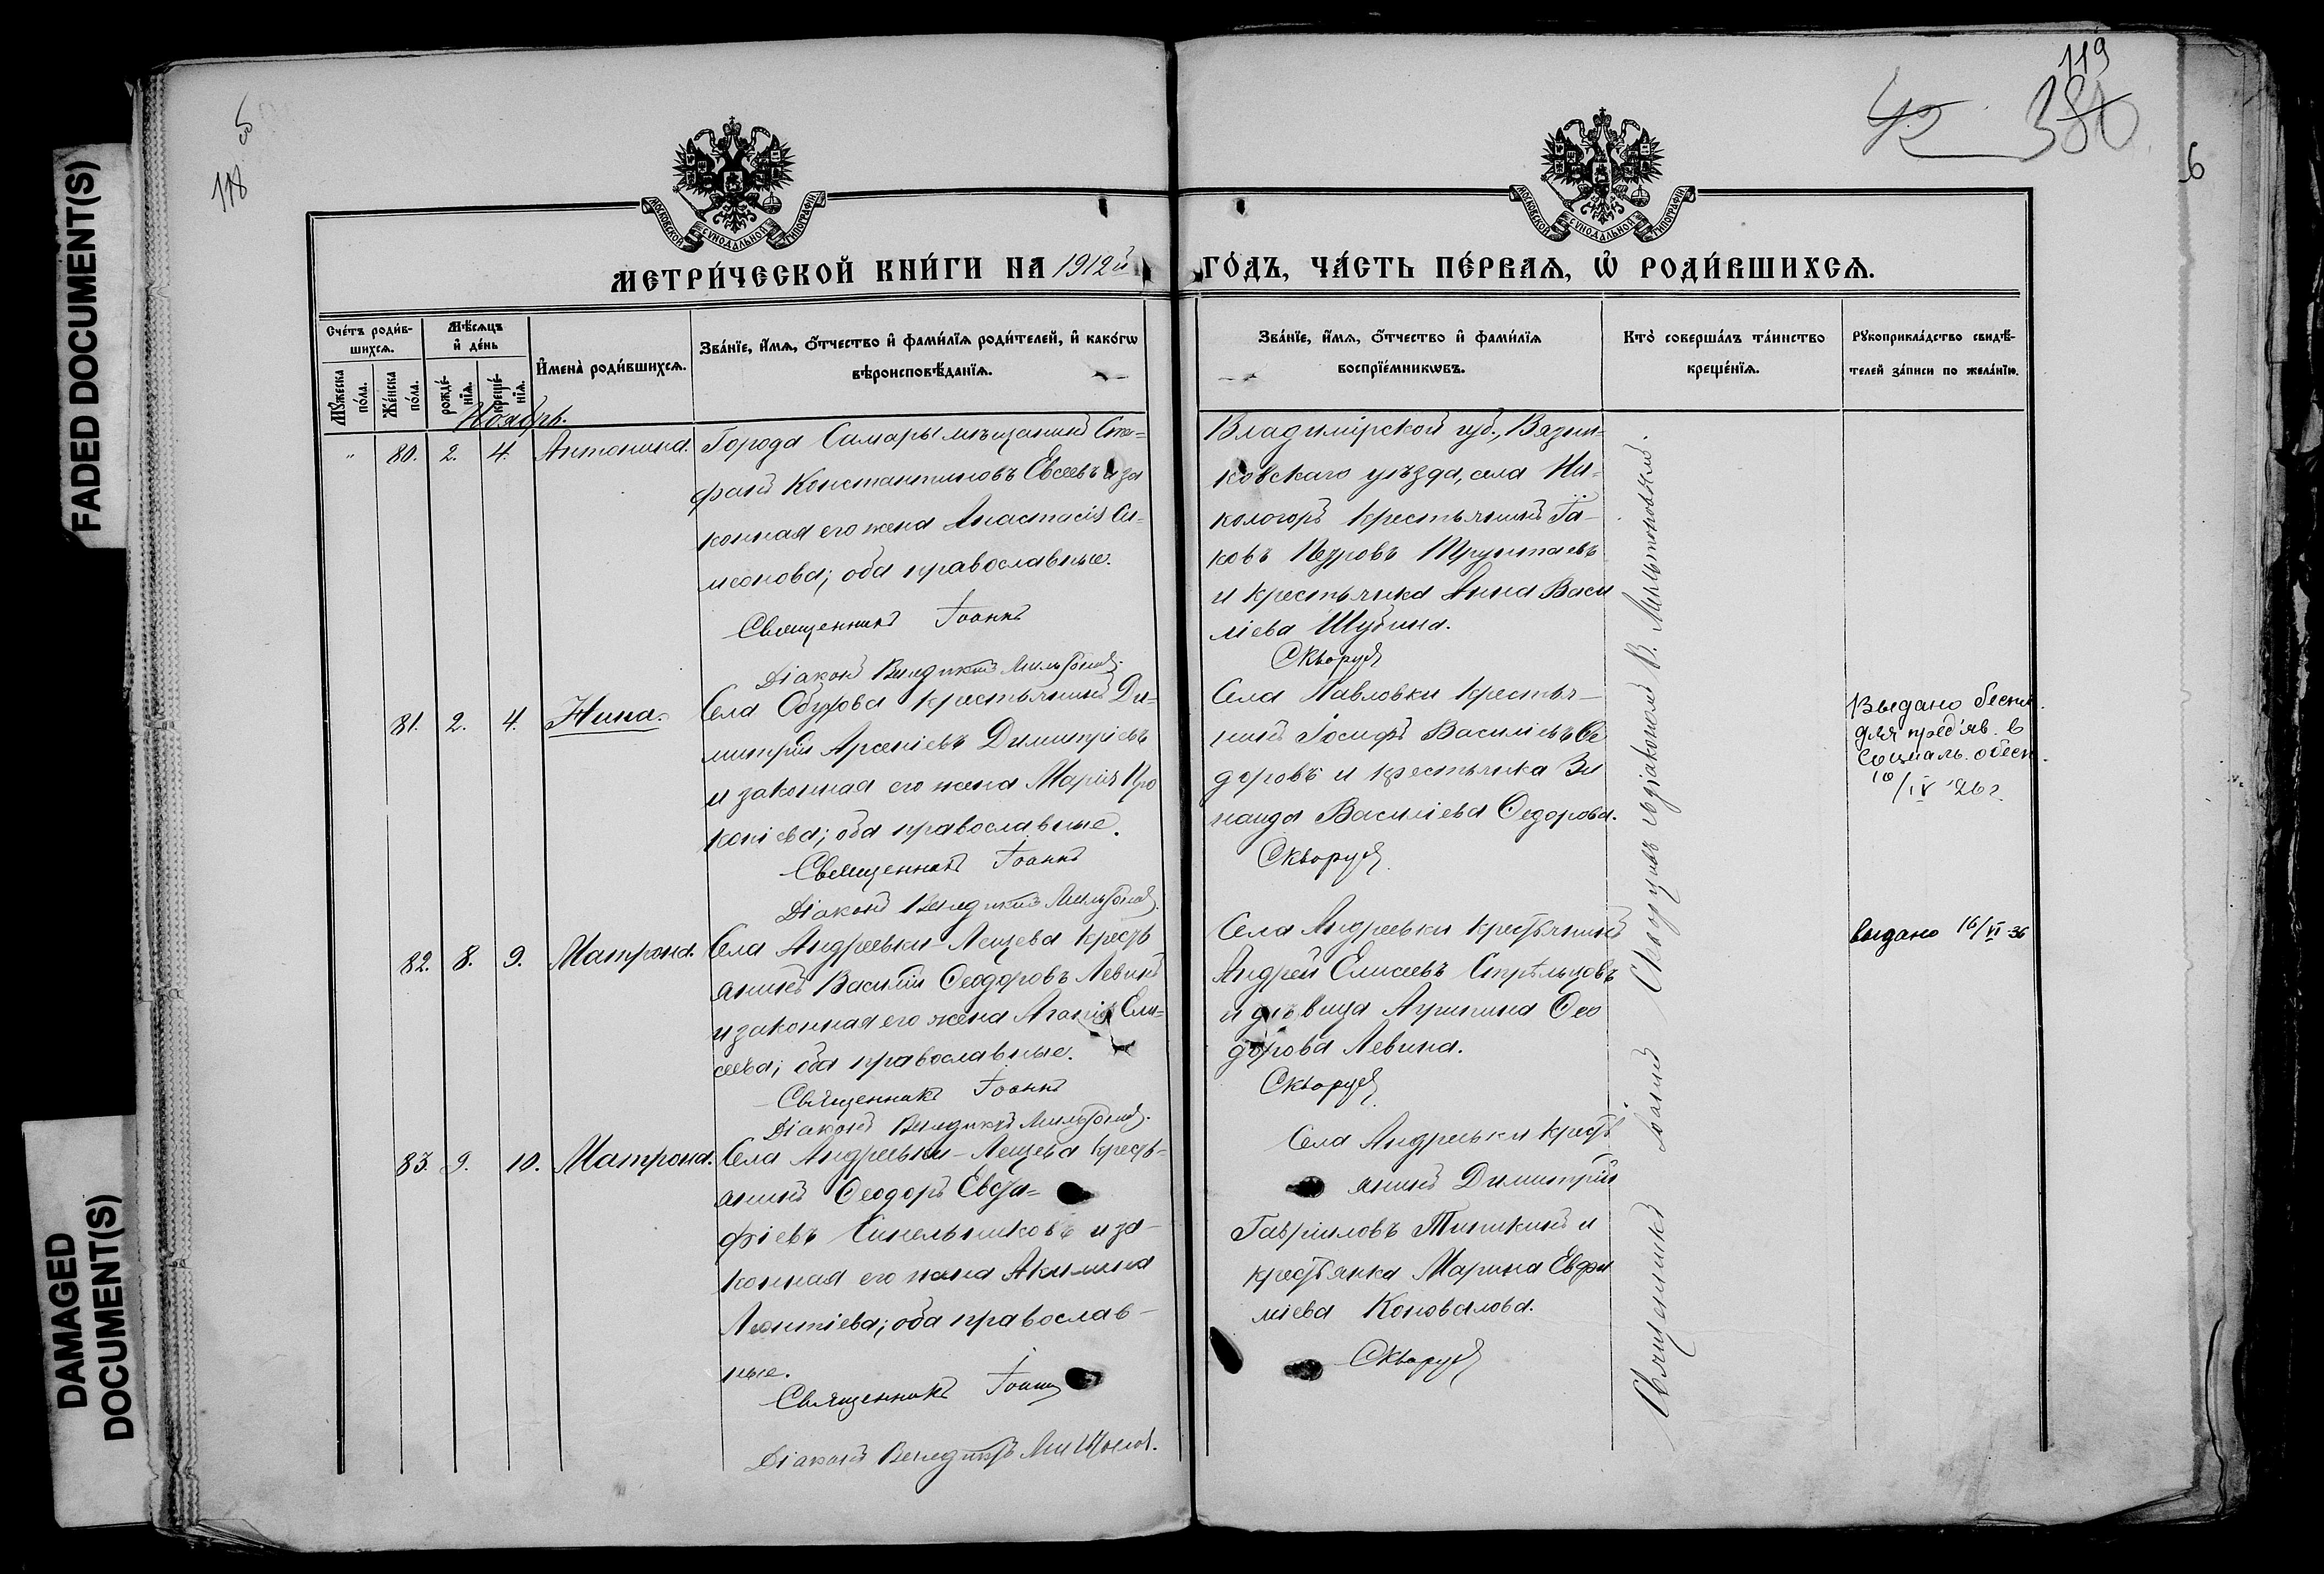 FADED DOCUMENT(S)
DAMAGED
DOCUMENT(S)
118
119
42
380
6
МОСКОВСКОЙ СѴНОДАЛЬНОЙ ТИПОГРАФІИ
МОСКОВСКОЙ СѴНОДАЛЬНОЙ ТИПОГРАФІИ
МЕТРИ́ЧЕСКОЙ КНИ́ГИ НА 1912й ГО́ДЪ, ЧА́СТЬ ПЕ́РВАѦ, Ѽ РОДИ́ВШИХСѦ.
Сче́тъ роди́в-
шихсѧ.
Мꙋ́жеска
по́ла.
Же́нска
по́ла.
Мѣ́сѧцъ
и҆ де́нь
рожде́-
нїѧ.
креще́-
нїѧ.
И҆мена̀ роди́вшихсѧ.
Зва́нїе, и҆́мѧ, ѻ҆́тчество и҆ фами́лїѧ роди́телей, и҆ како́гѡ
вѣроисповѣ́данїѧ.
Зва́нїе, и҆́мѧ, ѻ҆́тчество и҆ фами́лїѧ
воспрїе́мникѡвъ.
Кто̀ соверша́лъ та́инство
креще́нїѧ.
Рꙋкоприкла́дство свидѣ́-
телей за́писи по жела́нїю.
Ноябрь.
" 80. 2. 4. Антонина.
Города Самары мѣщанинъ Сте-
фанъ Константиновъ Евсеевъ и за
конная его жена Анастасія Си-
меонова; оба православные.
Священникъ Іоаннъ
Діаконъ Венедиктъ
Владимірской губ., Вязни-
ковскаго уѣзда, села Ни-
кологоръ крестьянинъ Іа-
ковъ Петровъ Трунтаевъ
и крестьянка Анна Васи
ліева Шубина.
Скворцовъ
81. 2. 4. Нина.
Села Обухова крестьянинъ Ди-
митрій Арсеніевъ Димитріевъ
и законная его жена Марія Про
копіева; оба православные.
Священникъ Іоаннъ
Діаконъ Венедиктъ
Села Павловки крестья-
нинъ Іосифъ Василіевъ Ѳе
доровъ и крестьянка Зи
наида Василіева Ѳедорова.
Скворцовъ
Выдано
для пред'яв. в
Социаль. обесп.
10/IV 26 г.
82. 8. 9. Матрона.
Села Андреевки-Лещева кресть
янинъ Василій Ѳеодоровъ Левинъ
и законная его жена Агапія Ели-
сеева; оба православные.
Священникъ Іоаннъ
Діаконъ Венедиктъ
Села Андреевки крестьянинъ
Андрей Елисеевъ Стрѣльцовъ
и дѣвица Агрипина Ѳео
дорова Левина.
Скворцовъ
выдано 16/VI 36
83. 9. 10. Матрона.
Села Андреевки-Лещева кресть-
янинъ Ѳеодоръ Евста-
фіевъ Синельниковъ и за-
конная его жена Акилина
Леонтіева; оба православ-
ные.
Священникъ Іоаннъ
Діаконъ Венедиктъ
Села Андреевки кресть
янинъ Димитрій
Гавріиловъ Типикинъ и
крестьянка Марина Евфи
міева Коновалова.
Скворцовъ
Священникъ Іоаннъ Скворцовъ съ діакономъ В.